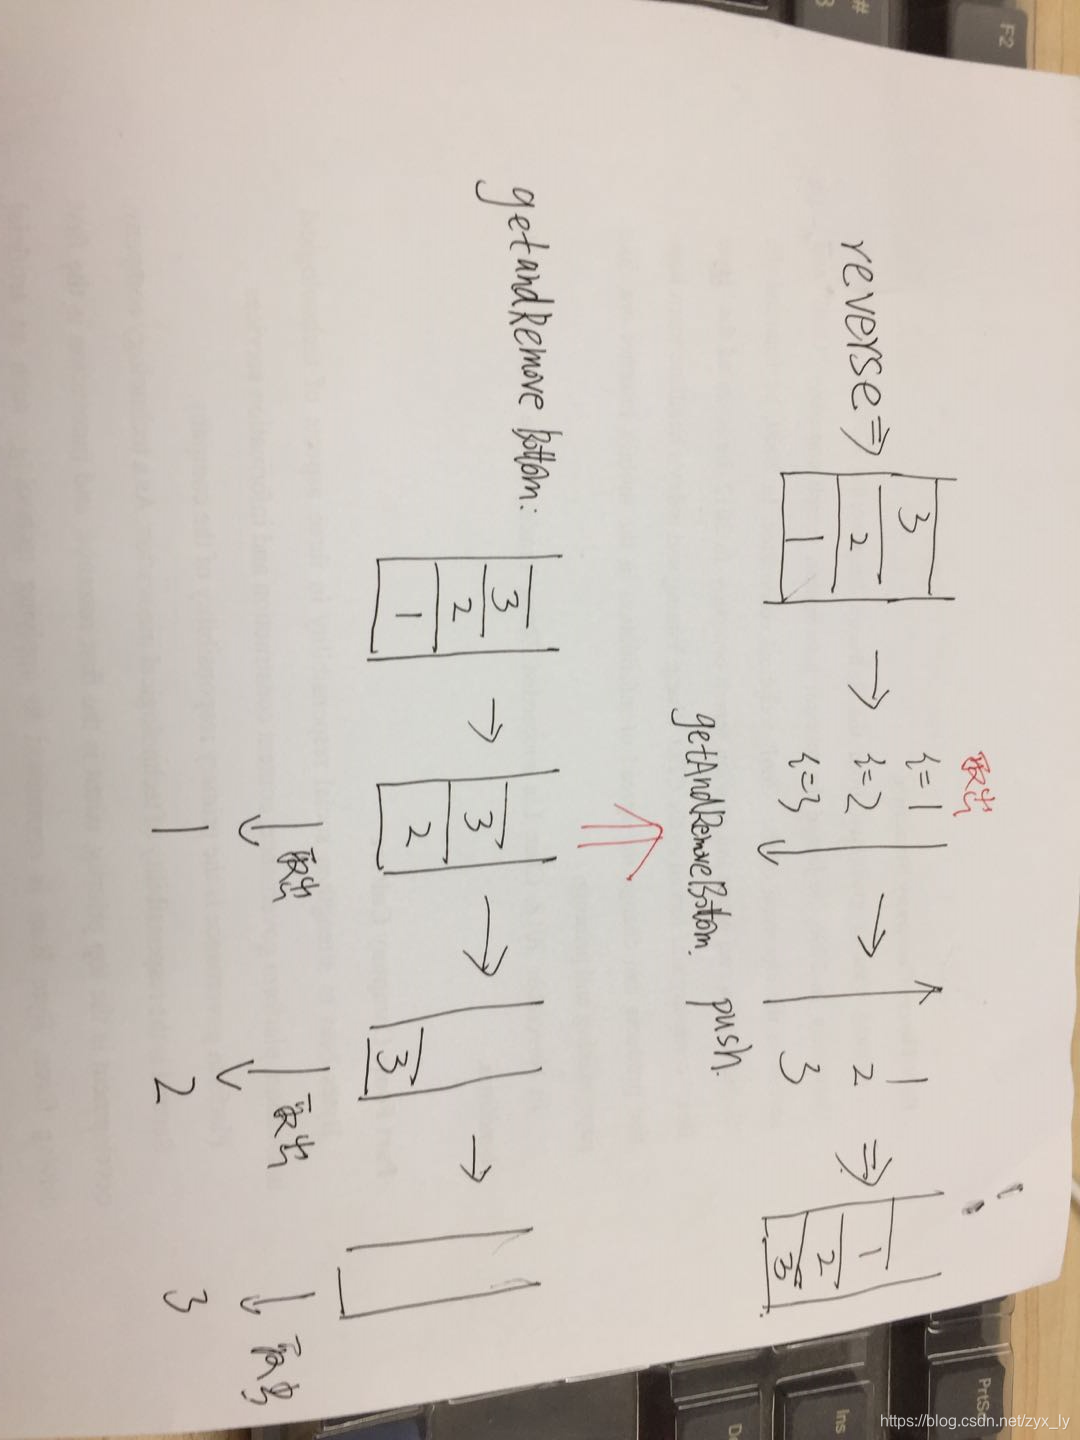 reverse⇒
3
2
1
→
取出
i=1
i=2
i=3
↓
getAndRemoveBottom.
→
↑
1
2
3
push.
⇒
1
2
3
getandRemove Bottom:
3
2
1
→
3
2
↓取出
1
→
3
↓取出
2
→
↓取出
3
F2
#
3
PrtSc
Ins
De
https://blog.csdn.net/zyx_ly